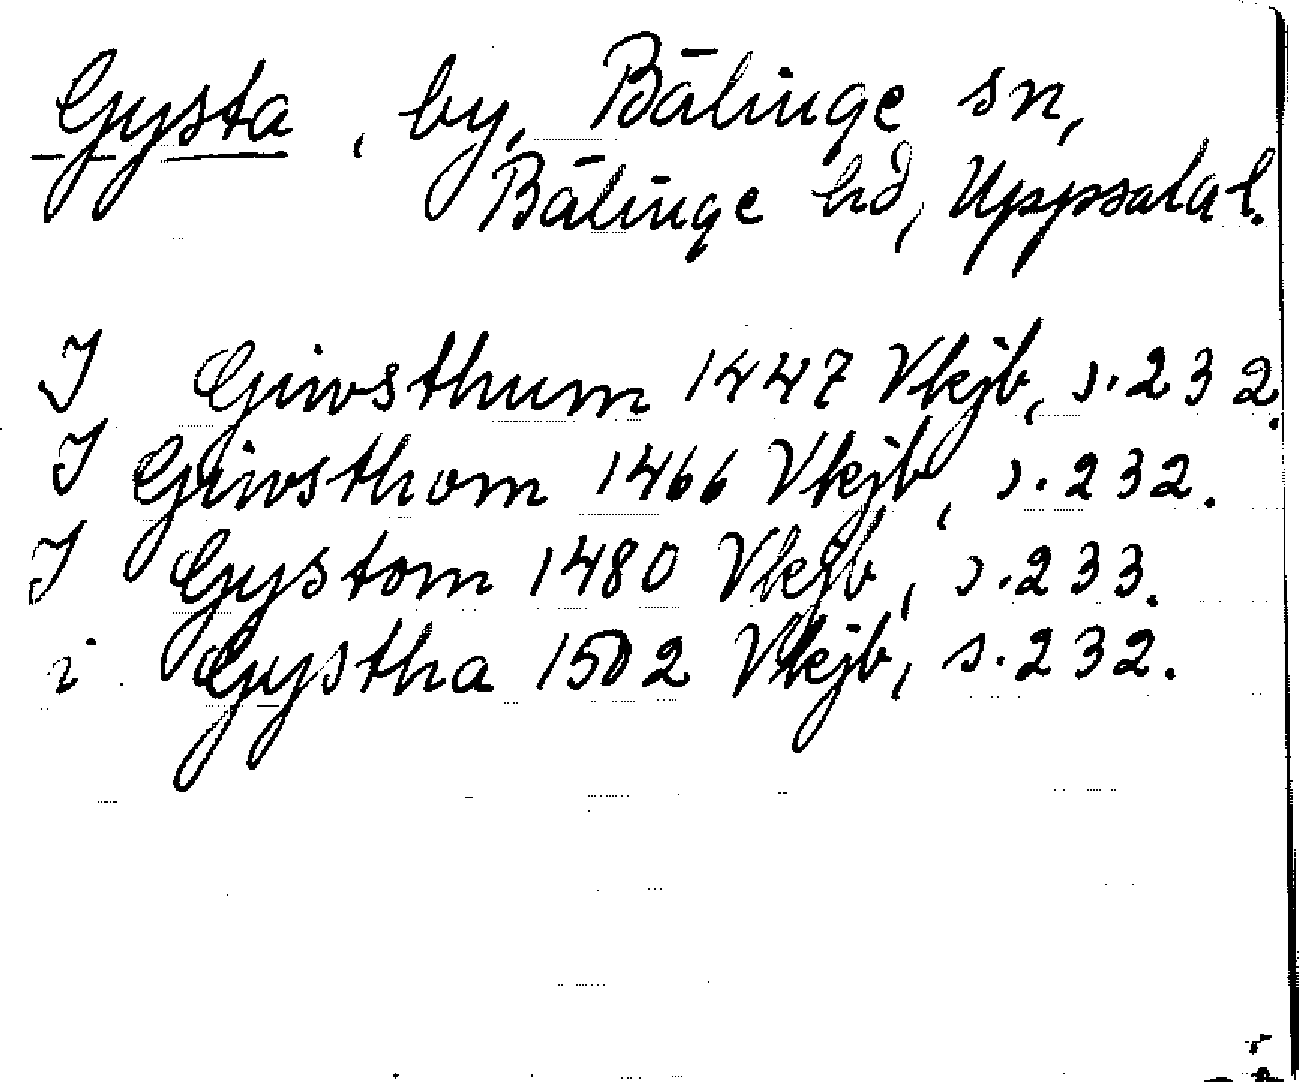 Gysta, by, Bälinge sn,
Bälinge hd, Uppsala l.
I Giwsthum 1447 Vkjb, s. 232.
I Giwsthom 1466 Vkjb, s. 232.
I Gystom 1480 Vkjb, s. 233.
i Gystha 1502 Vkjb, s. 232.